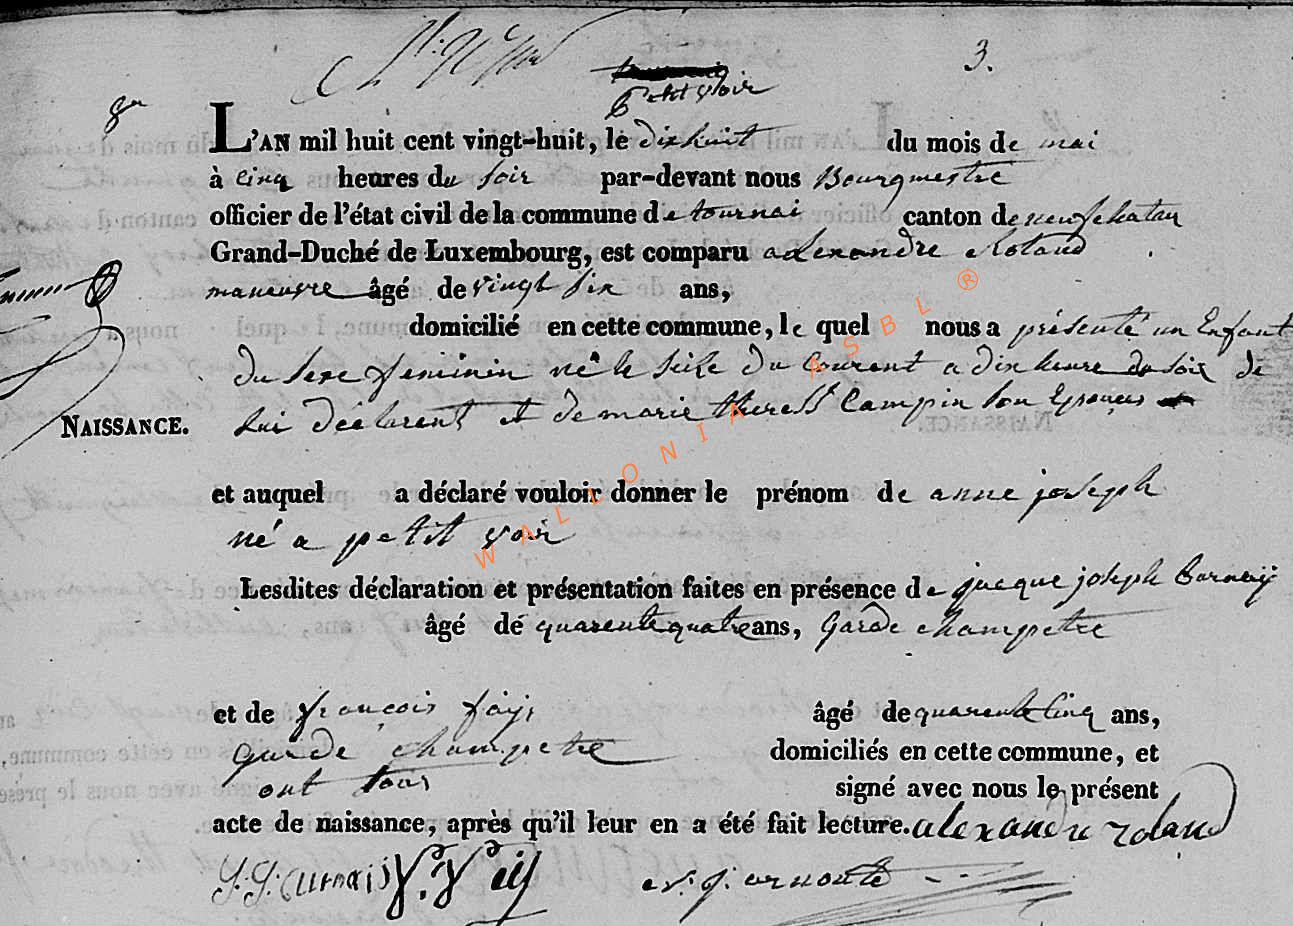 3.
petit voir
L'AN mil huit cent vingt-huit, le dixhuit du mois de mai
à cinq heures du soir par-devant nous Bourgmestre
officier de l'état civil de la commune de tournai canton de neufchatau
Grand-Duché de Luxembourg, est comparu alexandre Roland
maneuvre âgé de vingt six ans,
domicilié en cette commune, le quel nous a présenté un Enfant
du sexe feminin né le seize du Courent a dix heure du soir de
NAISSANCE.
lui déclarent et de marie theresse Campin son Epouces
et auquel a déclaré vouloir donner le prénom de anne joseph
né a petit voir
Lesdites déclaration et présentation faites en présence de jacque joseph
âgé de quarente quatre ans, Garde champetre
et de françois âgé de quarente cinq ans,
garde champetre domiciliés en cette commune, et
ont tous signé avec nous le présent
acte de naissance, après qu'il leur en a été fait lecture. alexandre roland
WALLONIA ASBL ®